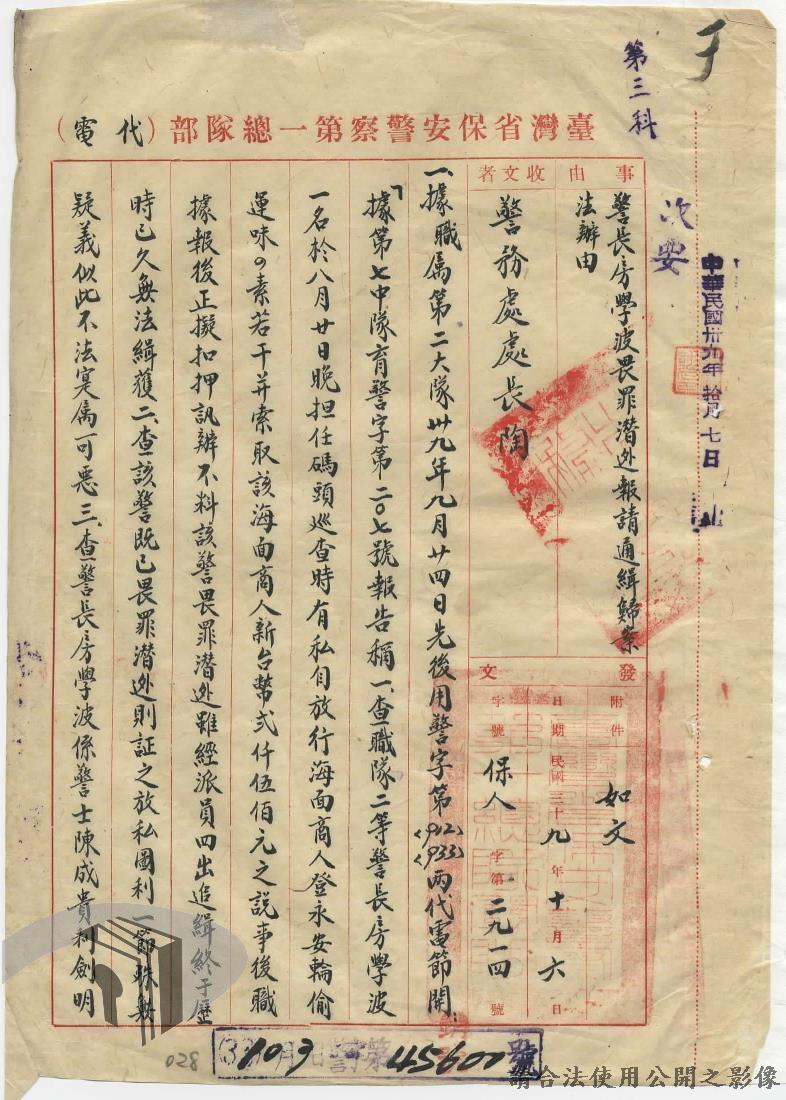 第三科
次要
中華民國卅九年拾月七日
臺灣省保安警察第一總隊部（代電）
事由
警長房學波畏罪潛逃報請通緝歸案
法辦由
收文者
警務處處長陶
發文
附件 如文
日期 民國三十九年十月六日
字號 保人字第二九一四號
一、據職屬第二大隊卅九年九月廿四日先後用警字第(912)(933)兩代電節開：
「據第七中隊育警字第二〇七號報告稱一、查職隊二等警長房學波
一名於八月廿日晚担任碼頭巡查時有私自放行海面商人登永安輪偷
運味の素若干并索取該海面商人新台幣弍仟伍佰元之説事後職
據報後正擬扣押訊辦不料該警畏罪潛逃雖經派員四出追緝終于歷
時已久無法緝獲二、查該警既已畏罪潛逃則証之放私圖利一節殊無
疑義似此不法寔属可惡三、查警長房學波係警士陳成貴利劍明
10.3
45600號
028
請合法使用公開之影像